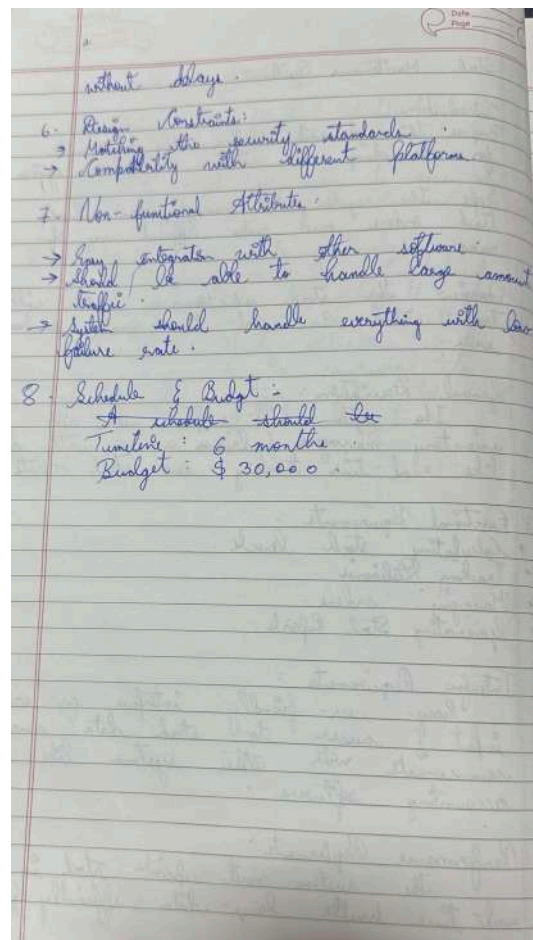 Date
Page
without delays.
6. Design Constraints:
→ Matching the security standards.
→ Compatibility with different platforms.
7. Non-functional Attributes.
→ Easy integration with other software.
→ Should be able to handle large amount
traffic.
→ System should handle everything with low
failure rate.
8. Schedule & Budget :-
A schedule should be
Timeline : 6 months.
Budget : $ 30,000.